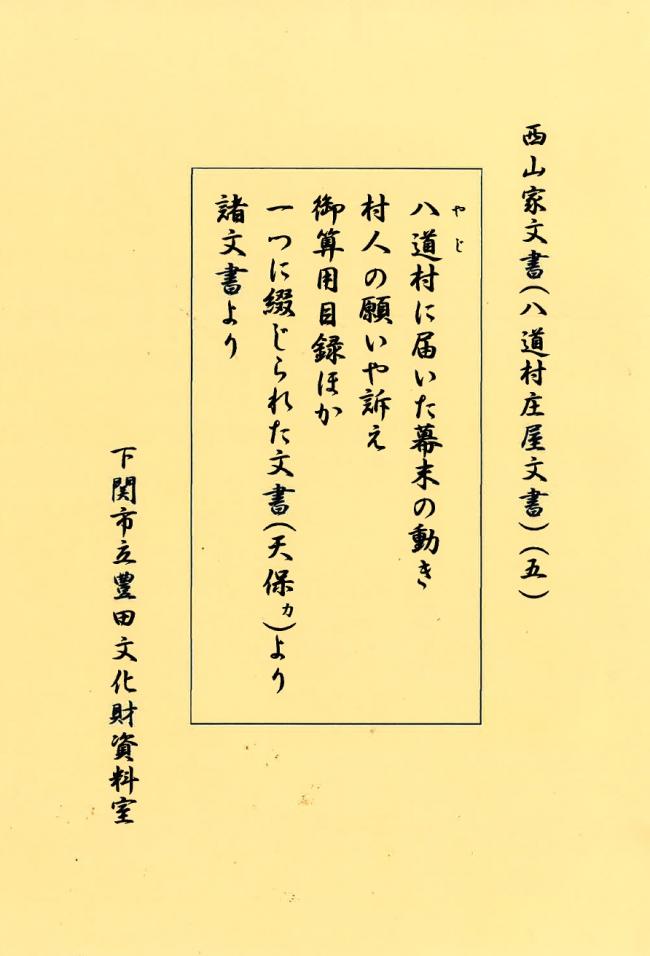 西山家文書(八道村庄屋文書)(五)
やじ
八道村に届いた幕末の動き
村人の願いや訴え
御算用目録ほか
一つに綴じられた文書(天保カ)より
諸文書より
下関市立豊田文化財資料室